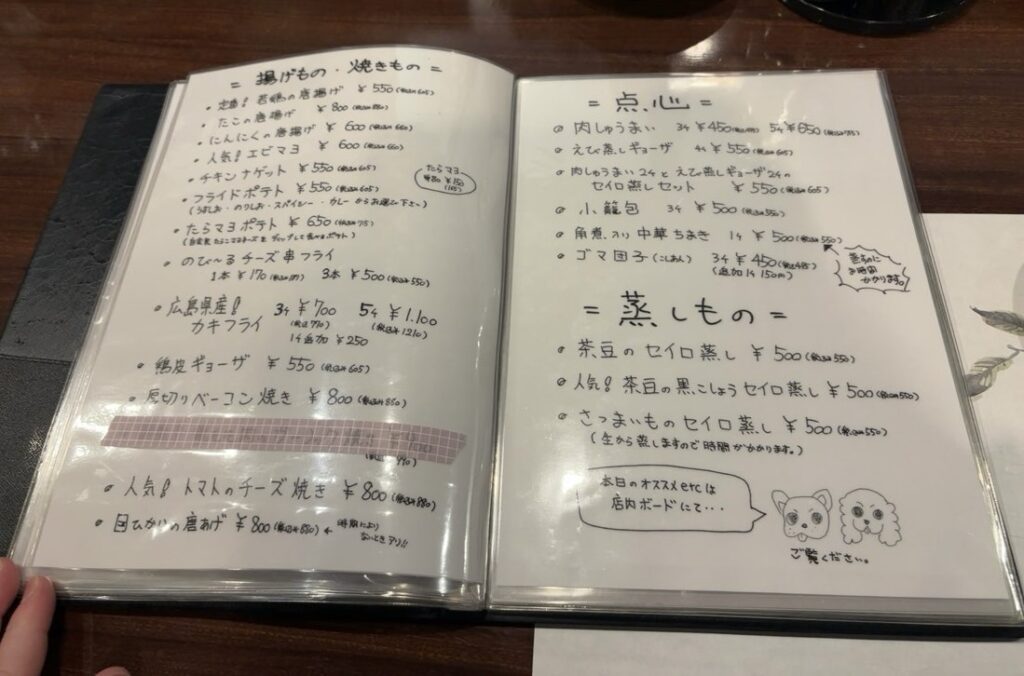 = 揚げもの・焼きもの =
定番! 若鶏の唐揚げ ¥550 (税込み605)
たこの唐揚げ ¥800 (税込み880)
にんにくの唐揚げ ¥600 (税込み660)
人気! エビマヨ ¥600 (税込み660)
チキンナゲット ¥550 (税込み605)
フライドポテト ¥550 (税込み605)
(うすしお・のりしお・スパイシー・カレーからお選び下さい)
たらマヨ
¥150
(165)
たらマヨポテト ¥650 (税込み715)
のび〜るチーズ串フライ
1本 ¥170 (税込み187) 3本 ¥500 (税込み550)
広島県産!
カキフライ
3ヶ ¥700 5ヶ ¥1.100
(税込770) (税込み1210)
1ヶ追加 ¥250
鶏皮ギョーザ ¥550 (税込み605)
厚切りベーコン焼き ¥800 (税込み880)
人気! トマトのチーズ焼き ¥800 (税込み880)
目ひかりの唐あげ ¥800 (税込み880) ← 時期により
ないときアリ!!
= 点心 =
肉しゅうまい 3ヶ ¥450 (税込495) 5ヶ ¥650 (税込み715)
えび蒸しギョーザ 4ヶ ¥550 (税込み605)
肉しゅうまい2ヶとえび蒸しギョーザ2ヶの
セイロ蒸しセット ¥550 (税込み605)
小籠包 3ヶ ¥500 (税込み550)
角煮入り中華ちまき 1ヶ ¥500 (税込み550)
ゴマ団子 (こしあん) 3ヶ ¥450 (税込み495)
(追加1ヶ 150円)
蒸すのに
お時間
かかります。
= 蒸しもの =
茶豆のセイロ蒸し ¥500 (税込み550)
人気! 茶豆の黒こしょうセイロ蒸し ¥500 (税込み550)
さつまいものセイロ蒸し ¥500 (税込み550)
(生から蒸しますので時間がかかります。)
本日のオススメetcは
店内ボードにて・・・
ご覧ください。